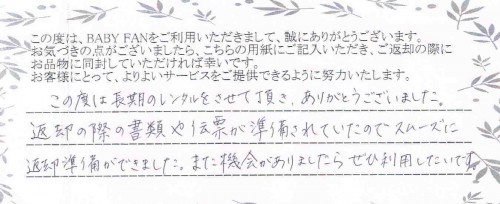 この度は、BABY FANをご利用いただきまして、誠にありがとうございます。
お気づきの点がございましたら、こちらの用紙にご記入いただき、ご返却の際に
お品物に同封していただければ幸いです。
お客様にとって、よりよいサービスをご提供できるように努力いたします。
この度は長期のレンタルをさせて頂き、ありがとうございました。
返却の際の書類や伝票が準備されていたのでスムーズに
返却準備ができました。また機会がありましたらぜひ利用したいです。